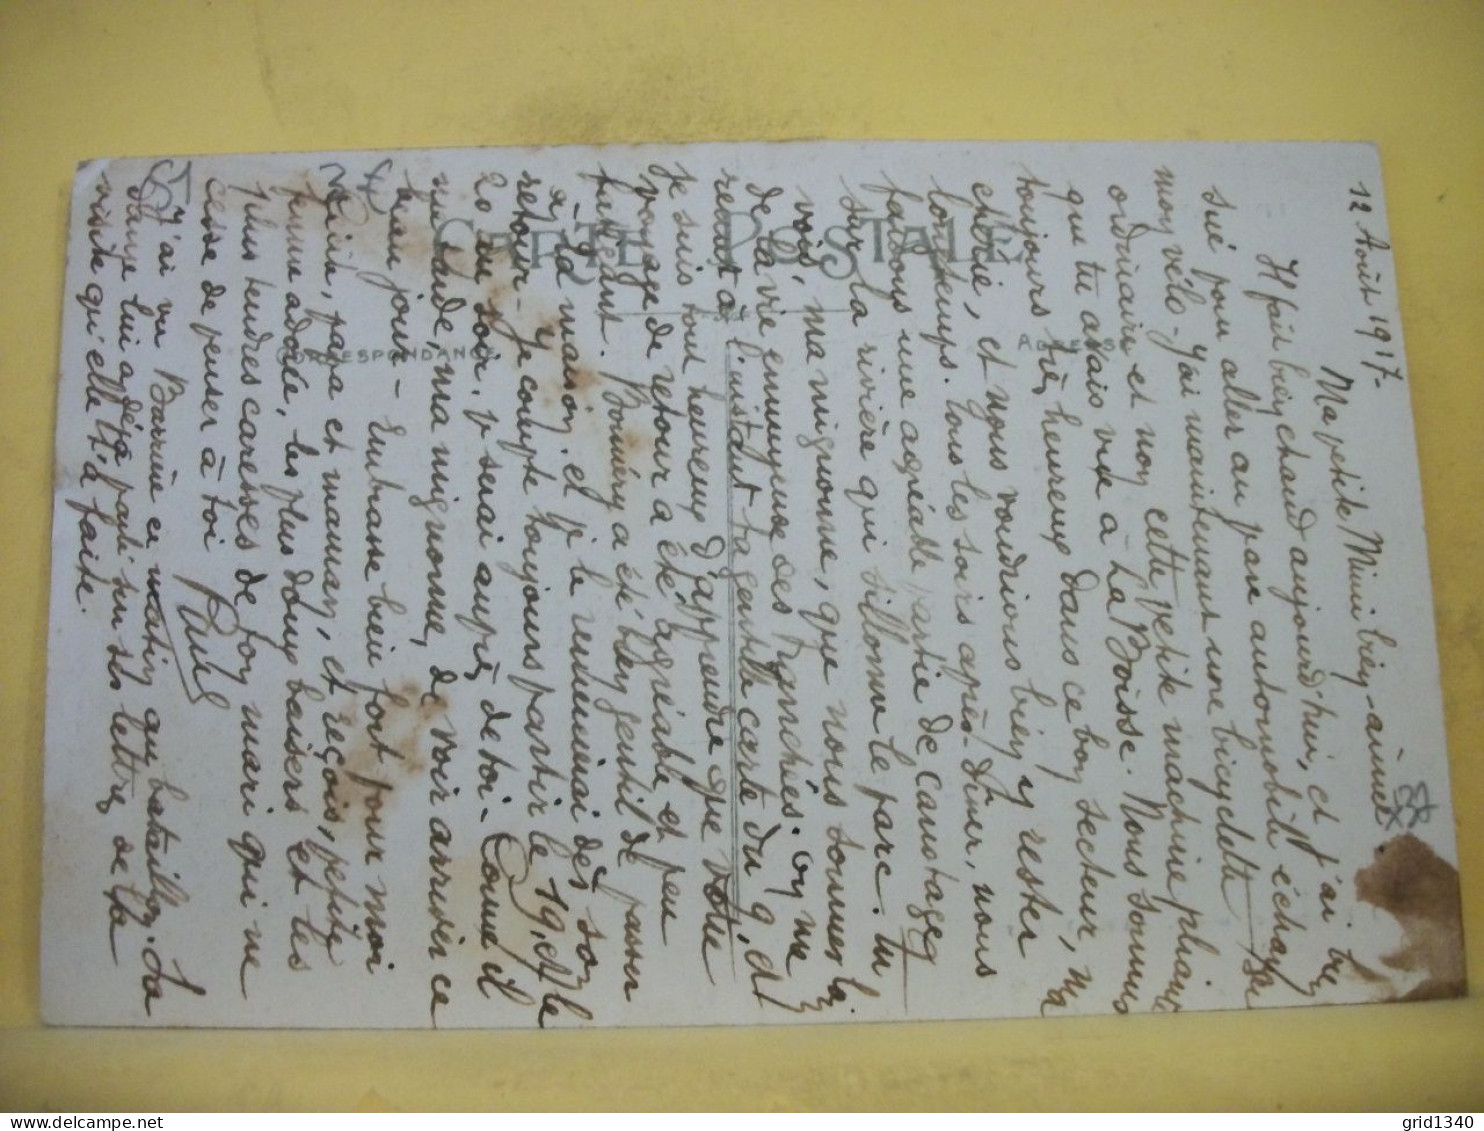 12 Août 1917.
Ma petite Mimi bien-aimée.
Il fait bien chaud aujourd'hui, et j'ai bien
sué pour aller au parc automobile échanger
mon vélo - J'ai maintenant une bicyclette
ordinaire et non cette petite machine pliante
que tu avais vue à La Boisse. Nous sommes
toujours très heureux dans ce bon secteur, ma
chérie, et nous voudrions bien y rester
longtemps. Tous les soirs après-dîner, nous
faisons une agréable partie de canotage
sur la rivière qui sillonne le parc. Tu
vois, ma mignonne, que nous sommes
de la vie ennuyeuse des tranchées. On me
remet à l'instant ta gentille carte du 9, et
je suis tout heureux d'apprendre que votre
voyage de retour a été agréable et peu
fatigant. a été bien gentil de passer
à la maison, et je le remercierai dès son
retour - Je compte toujours partir le 19, et le
20 au soir, je serai auprès de toi. Comme il
me tarde, ma mignonne, de voir arriver ce
beau jour - Embrasse bien fort pour moi
papa et maman, et reçois, petite
femme adorée, les plus doux baisers et les
plus tendres caresses de ton mari qui ne
cesse de penser à toi
Paul
J'ai vu Barrière ce matin au bataillon. Sa
lui a déjà parlé sur ses lettres de la
visite qu'elle t'a faite.
CARTE POSTALE
CORRESPONDANCE
ADRESSE
37
4
5
grid1340